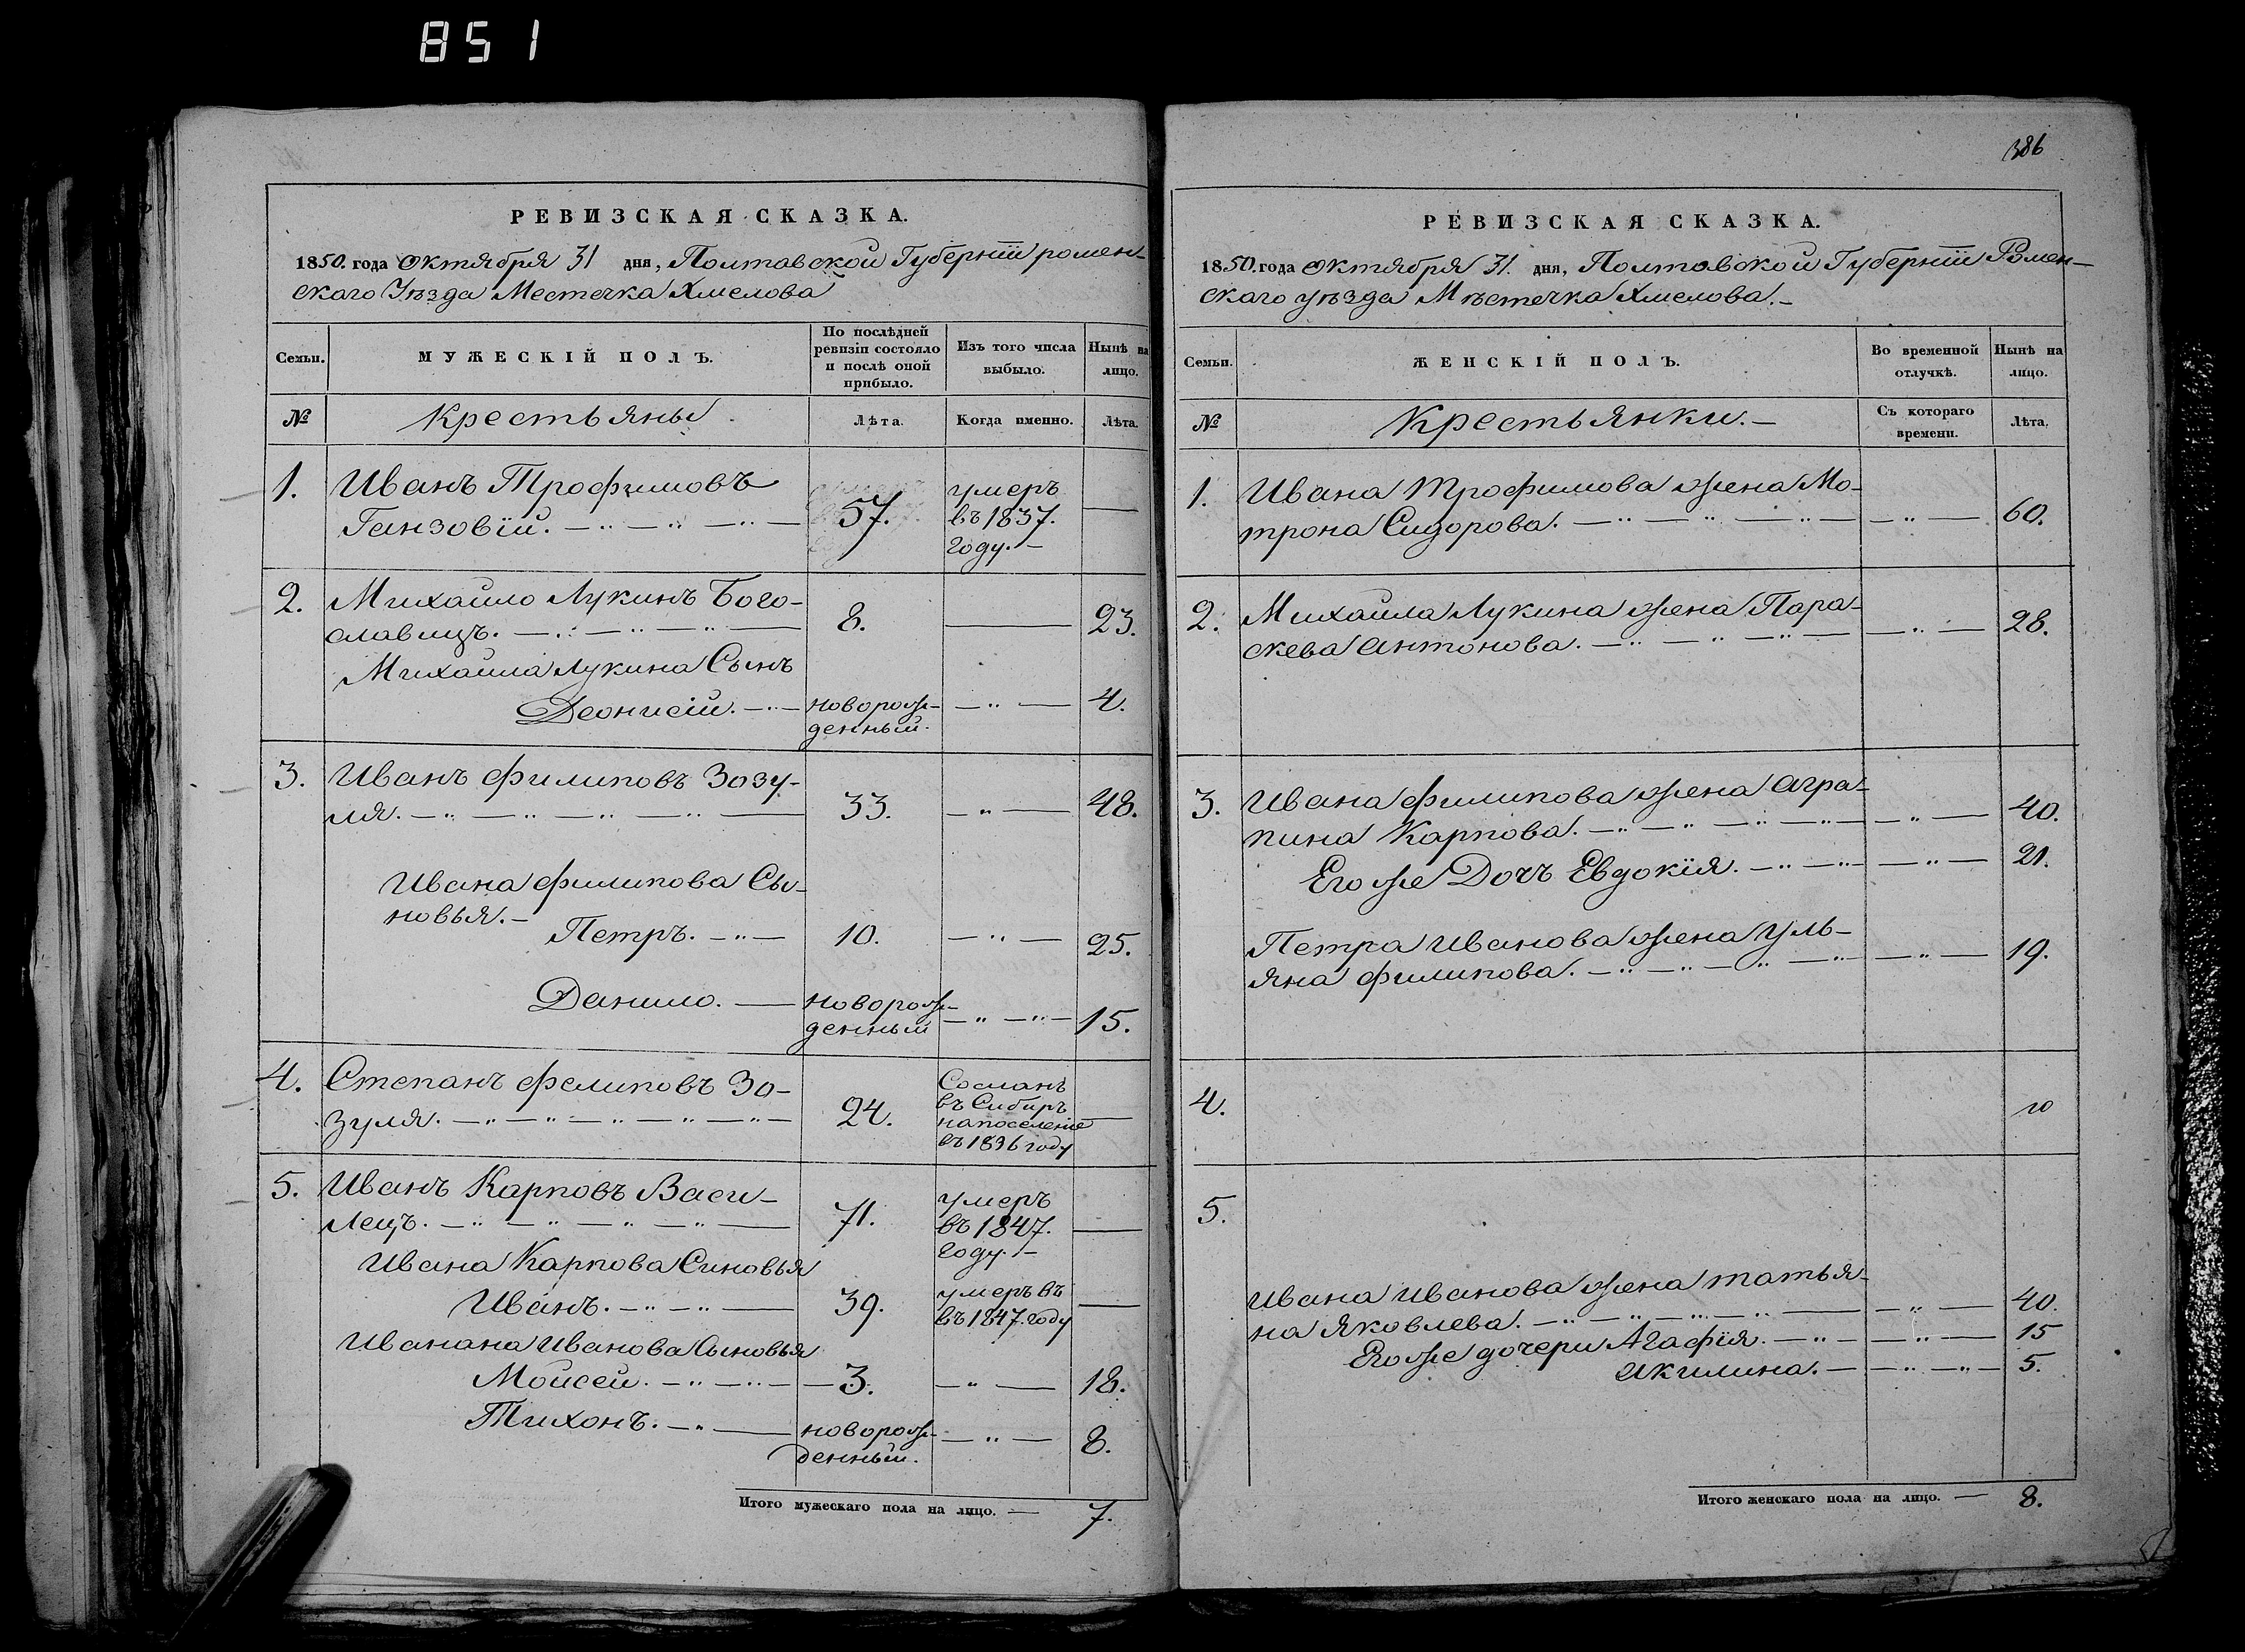 851
РЕВИЗСКАЯ СКАЗКА.
1850. года октября 31 дня, Полтавской Губерніи ромен-
скаго Уѣзда Местечка Хмелова
Семьи.
МУЖЕСКІЙ ПОЛЪ.
По послѣдней ревизіи состояло и послѣ оной прибыло.
Изъ того числа выбыло.
Нынѣ на лицо.
№
Крестьяны
Лѣта.
Когда именно.
Лѣта.
1. Иванъ Трофимовъ
Ганзовій. — 57. умеръ въ 1837. году. —
2. Михайло Лукинъ Бого-
славицъ. — 8. — 23.
Михайла Лукина Сынъ
Деонисій. — новорож-
денный. — 4.
3. Иванъ Филиповъ Зозу-
ля. — 33. — 48.
Ивана Филипова Сы-
новья. —
Петръ. — 10. — 25.
Данило. — новорож-
денный — 15.
4. Степанъ Фелиповъ Зо-
зуля. — 24. Сосланъ въ Сибиръ на поселение въ 1836 году —
5. Иванъ Карповъ Васи-
лецъ. — 71. умеръ въ 1847. году. —
Ивана Карпова Синовья
Иванъ. — 39. умеръ въ въ 1847. году —
Иванана Иванова Сыновья
Мойсей. — 3. — 18.
Тихонъ. — новорож-
денный. — 8.
Итого мужескаго пола на лицо. — 7.
386
РЕВИЗСКАЯ СКАЗКА.
1850. года октября 31. дня, Полтавской Губерніи Ромен-
скаго уѣзда Мѣстечка Хмелова. —
Семьи.
ЖЕНСКІЙ ПОЛЪ.
Во временной отлучкѣ.
Нынѣ на лицо.
№
Крестьянки. —
Съ котораго времени.
Лѣта.
1. Ивана Трофимова жена Мо-
трона Сидорова. — 60.
2. Михайла Лукина жена Пара-
скева Антонова. — 28.
3. Ивана Филипова жена Агра-
пина Карпова. — 40.
Егоже Дочъ Евдокія. — 21.
Петра Иванова жена Уль-
яна Филипова. — 19.
4.
5.
Ивана Иванова жена Татья-
на Яковлева. — 40.
Егоже дочери Агафія. — 15
Акилина. — 5.
Итого женскаго пола на лицо. — 8.